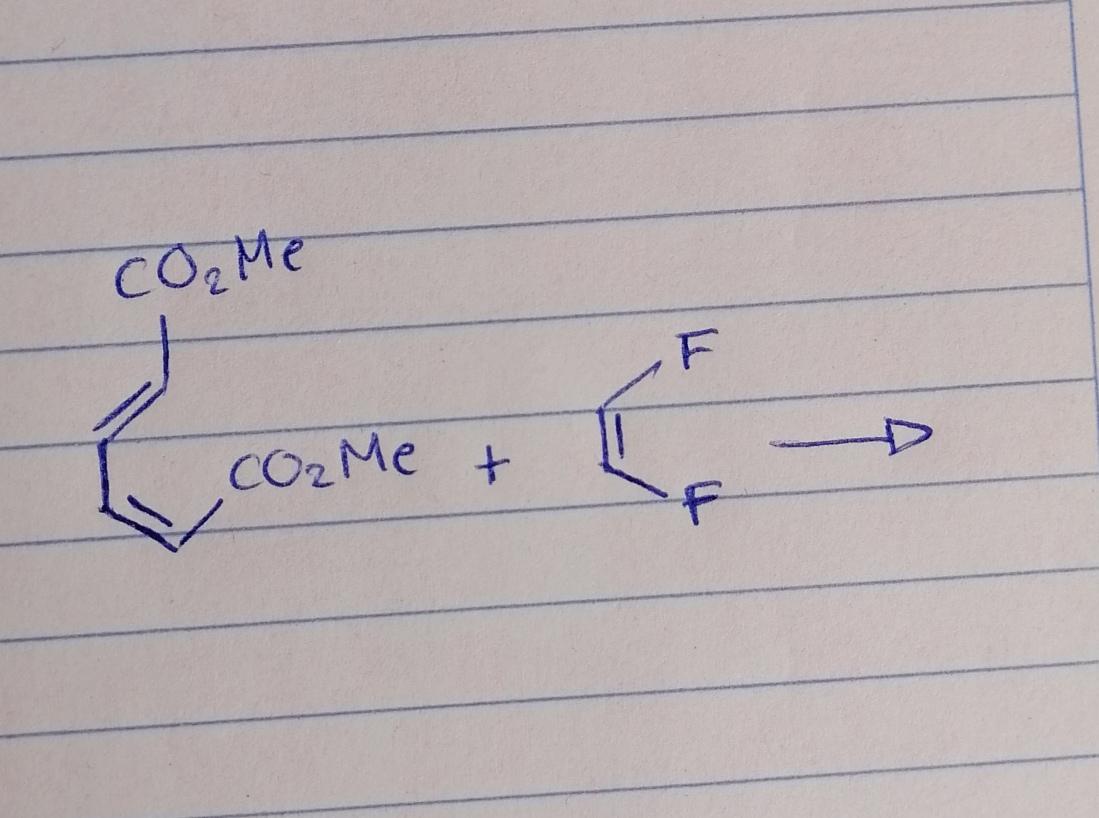 CO₂Me
F
CO₂Me +
F